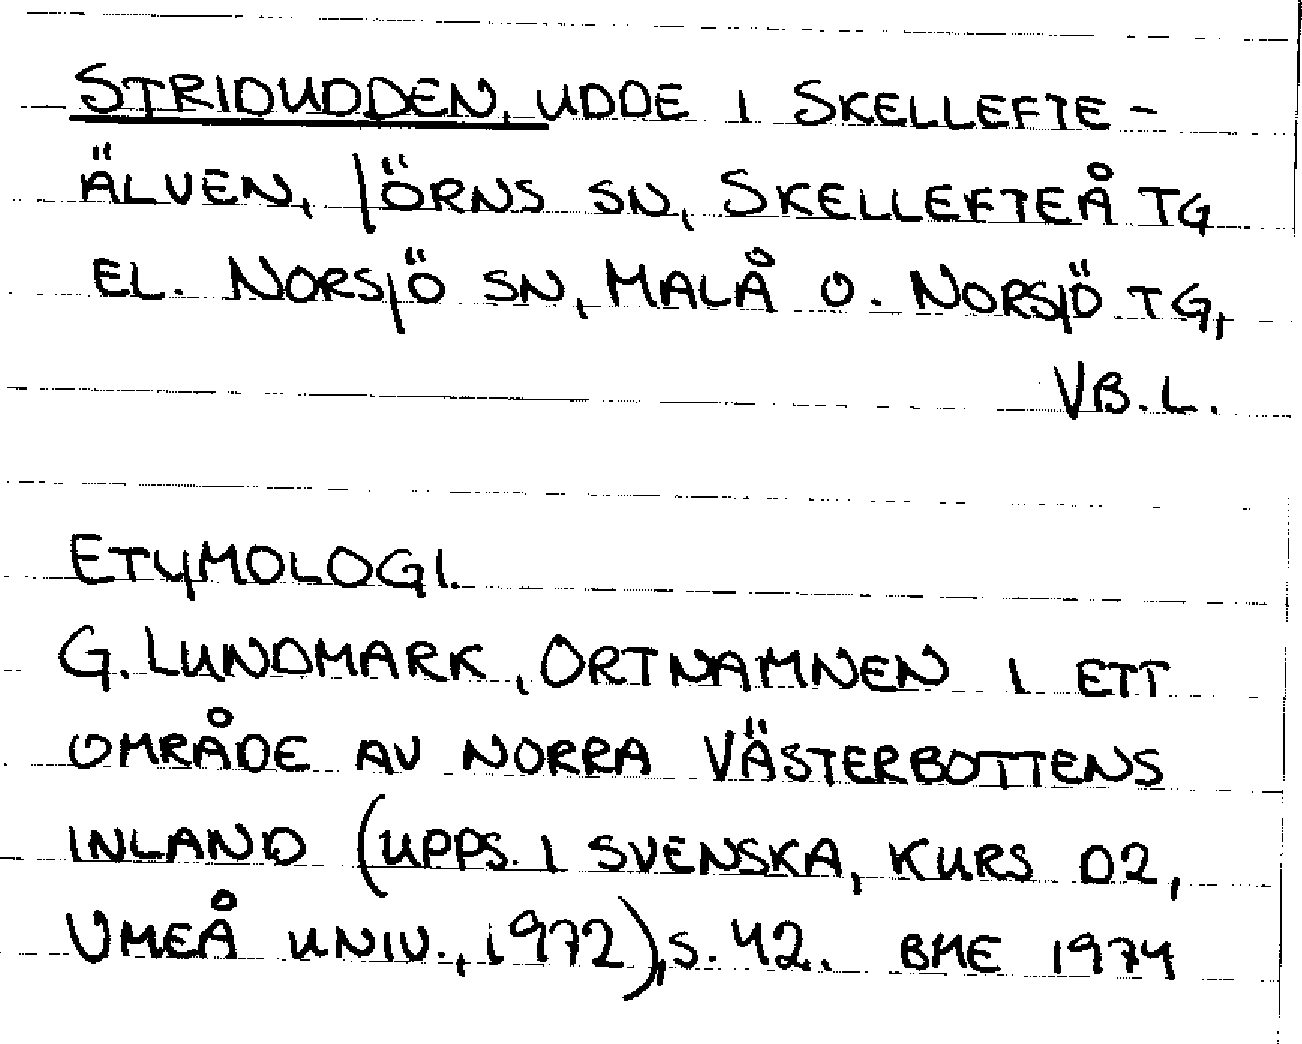 STRIDUDDEN, UDDE I SKELLEFTE-
ÄLVEN, JÖRNS SN, SKELLEFTEÅ TG
EL. NORSJÖ SN, MALÅ O. NORSJÖ TG,
VB.L.
ETYMOLOGI.
G. LUNDMARK, ORTNAMNEN I ETT
OMRÅDE AV NORRA VÄSTERBOTTENS
INLAND (UPPS. I SVENSKA, KURS D2,
UMEÅ UNIV., 1972), S. 42. BME 1974